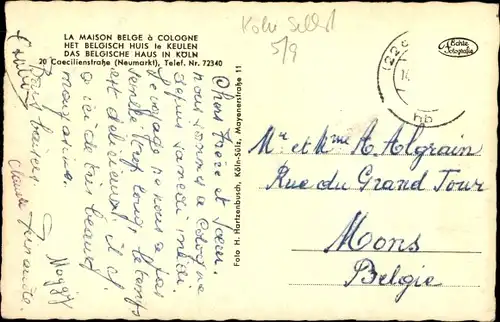 LA MAISON BELGE à COLOGNE
HET BELGISCH HUIS te KEULEN
DAS BELGISCHE HAUS IN KÖLN
20 Caecilienstraße (Neumarkt), Telef. Nr. 72340
Köln Selbst
5/9
Echte
Fotografie
(22c)
Foto H. Hartzenbusch, Köln-Sülz, Mayenerstraße 11
Chers frère et sœur
nous sommes à Cologne
depuis samedi midi
Le voyage ne nous a pas
semblé trop long, le temps
est délicieux, il y
a ici de très beaux
magasins.
Bons baisers
Maggy
Fernande.
Claude
Mr et Mme A. Algrain
Rue du Grand Tour
Mons
Belgie